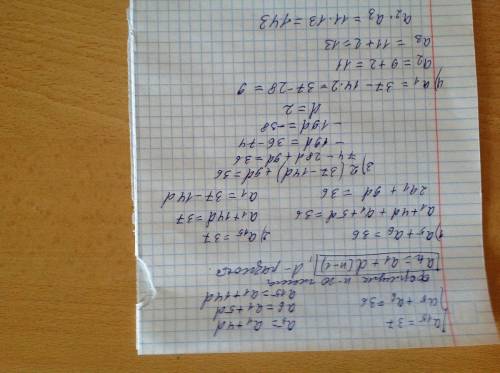 a₁₅ = 37 a₅ = a₁ + 4d
a₅ + a₆ = 36 a₆ = a₁ + 5d
a₁₅ = a₁ + 14d
формула n-го члена
aₙ = a₁ + d(n-1), d - разность.
1) a₅ + a₆ = 36 2) a₁₅ = 37
a₁ + 4d + a₁ + 5d = 36 a₁ + 14d = 37
2a₁ + 9d = 36 a₁ = 37 - 14d
3) 2(37 - 14d) + 9d = 36
74 - 28d + 9d = 36
- 19d = 36 - 74
- 19d = -38
d = 2
4) a₁ = 37 - 14·2 = 37 - 28 = 9
a₂ = 9 + 2 = 11
a₃ = 11 + 2 = 13
a₂ · a₃ = 11 · 13 = 143